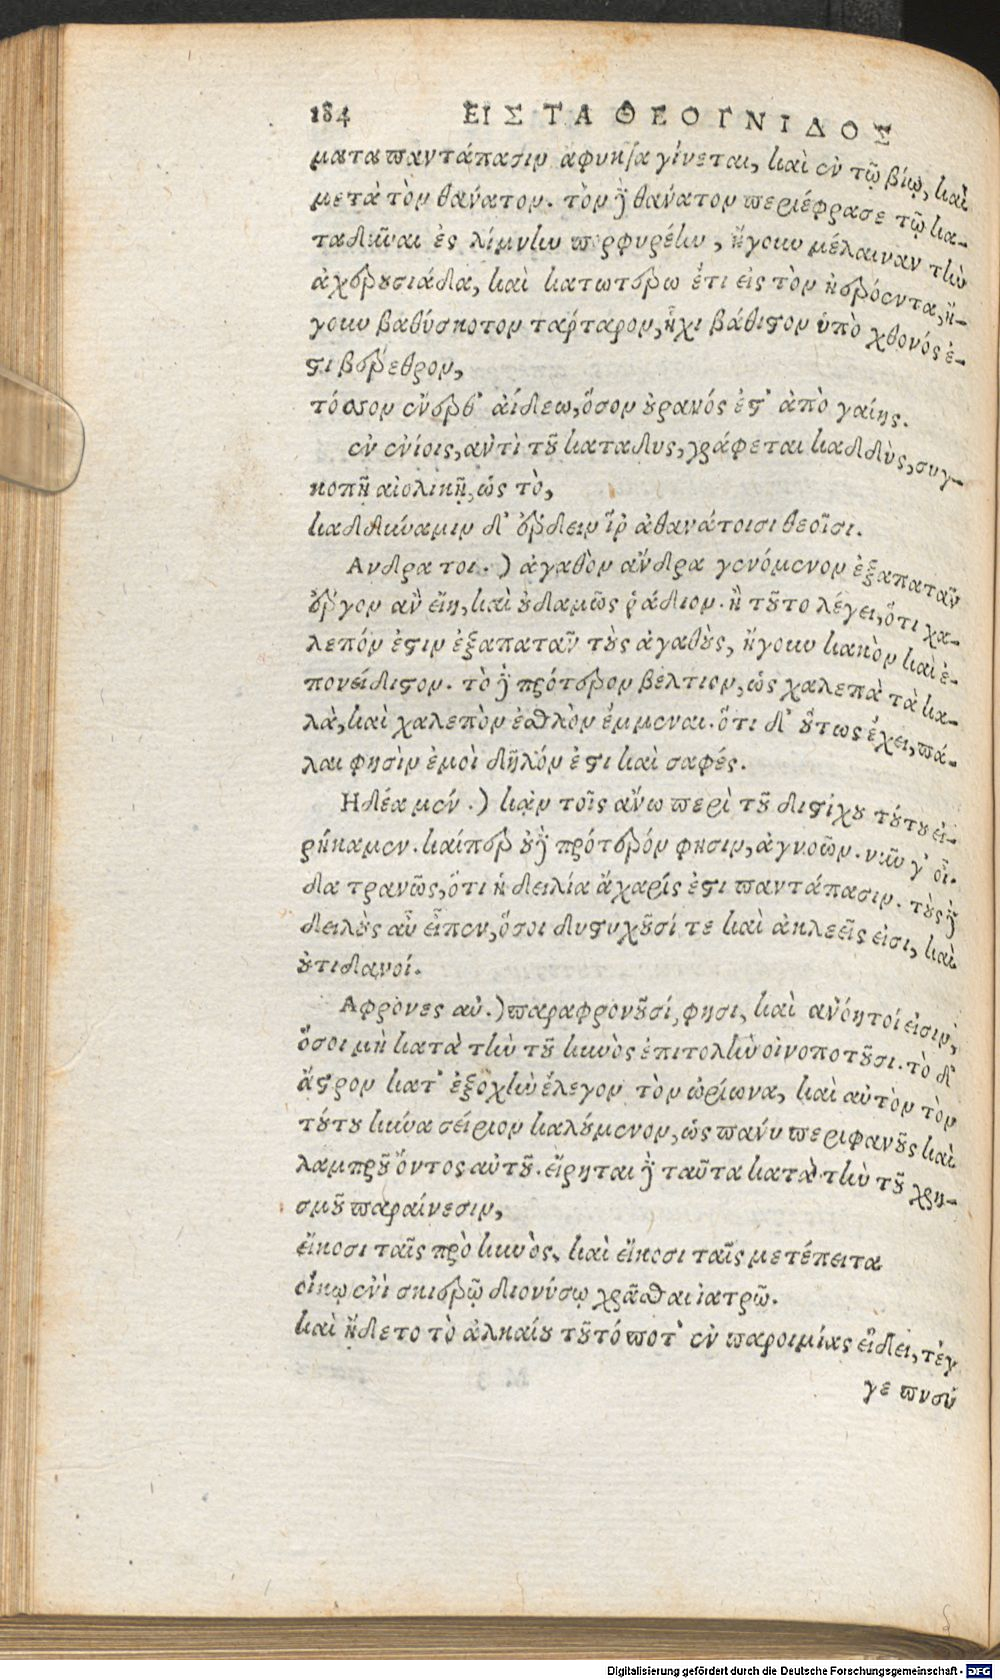 184 ΕΙΣ ΤΑ ΘΕΟΓΝΙΔΟΣ
ματα παντάπασιν γίνεται, καὶ ἐν τῷ βίῳ, καὶ
μετὰ τὸν θάνατον. τὸν δὲ θάνατον περιέφρασε τῷ κα-
ταδῦναι ἐς λίμνην πορφυρέην, ἤγουν μέλαιναν τὴν
ἀχερουσιάδα, καὶ κατωτέρω ἔτι εἰς τὸν ἠερόεντα, ἤ-
γουν βαθύσκοτον τάρταρον, ἧχι βάθιστον ὑπὸ χθονός ἐ-
στι βέρεθρον,
τόσσον ἔνερθ' ἀίδεω, ὅσον οὐρανός ἐστ' ἀπὸ γαίης.
ἐν ἐνίοις, ἀντὶ τοῦ καταδὺς, γράφεται καδδὺς, συγ-
κοπῇ αἰολικῇ, ὡς τὸ,
καδδύναμιν δ' ἔρδειν ἵερ ἀθανάτοισι θεοῖσι.
Ανδρα τοι.) ἀγαθὸν ἄνδρα γενόμενον ἐξαπατᾶν
ἔργον ἂν εἴη, καὶ οὐδαμῶς ῥάδιον. ἢ τοῦτο λέγει, ὅτι χα-
λεπόν ἐστιν ἐξαπατᾶν τοὺς ἀγαθοὺς, ἤγουν κακὸν καὶ ἐ-
πονείδιστον. τὸ δὲ πρότερον βέλτιον, ὡς χαλεπὰ τὰ κα-
λὰ, καὶ χαλεπὸν ἐσθλὸν ἔμμεναι. ὅτι δ' οὕτως ἔχει, πά-
λαι φησὶν ἐμοὶ δῆλόν ἐστι καὶ σαφές.
Ηδέα μέν.) κἀν τοῖς ἄνω περὶ τοῦ διστίχου τούτου εἰ-
ρήκαμεν. καίπερ οὐδὲ πρότερόν φησιν, ἀγνοῶν. νῦν γ' οἶ-
δα τρανῶς, ὅτι ἡ δειλία ἄχαρίς ἐστι παντάπασιν. τοὺς δὲ
δειλοὺς αὖ εἶπεν, ὅσοι δυστυχοῦσί τε καὶ ἀκλεεῖς εἰσι, καὶ
οὐτιδανοί.
Αφρονες αὐ.) παραφρονοῦσί, φησι, καὶ ἀνόητοί εἰσιν,
ὅσοι μὴ κατὰ τὴν τοῦ κυνὸς ἐπιτολὴν οἰνοποτοῦσι. τὸ δ'
ἄστρον κατ' ἐξοχὴν ἔλεγον τὸν ὠρίωνα, καὶ αὐτὸν τὸν
τούτου κύνα σείριον καλούμενον, ὡς πάνυ περιφανοῦς καὶ
λαμπροῦ ὄντος αὐτοῦ. εἴρηται δὲ ταῦτα κατὰ τὴν τοῦ χρη-
σμοῦ παραίνεσιν,
εἴκοσι ταῖς πρὸ κυνὸς, καὶ εἴκοσι ταῖς μετέπειτα
οἴκῳ ἐνὶ σκιερῷ διονύσῳ χρᾶσθαι ἰατρῷ.
καὶ ᾔδετο τὸ ἀλκαίου τοῦτό ποτ' ἐν παροιμίας εἴδει, τέγ
γε πνεύ